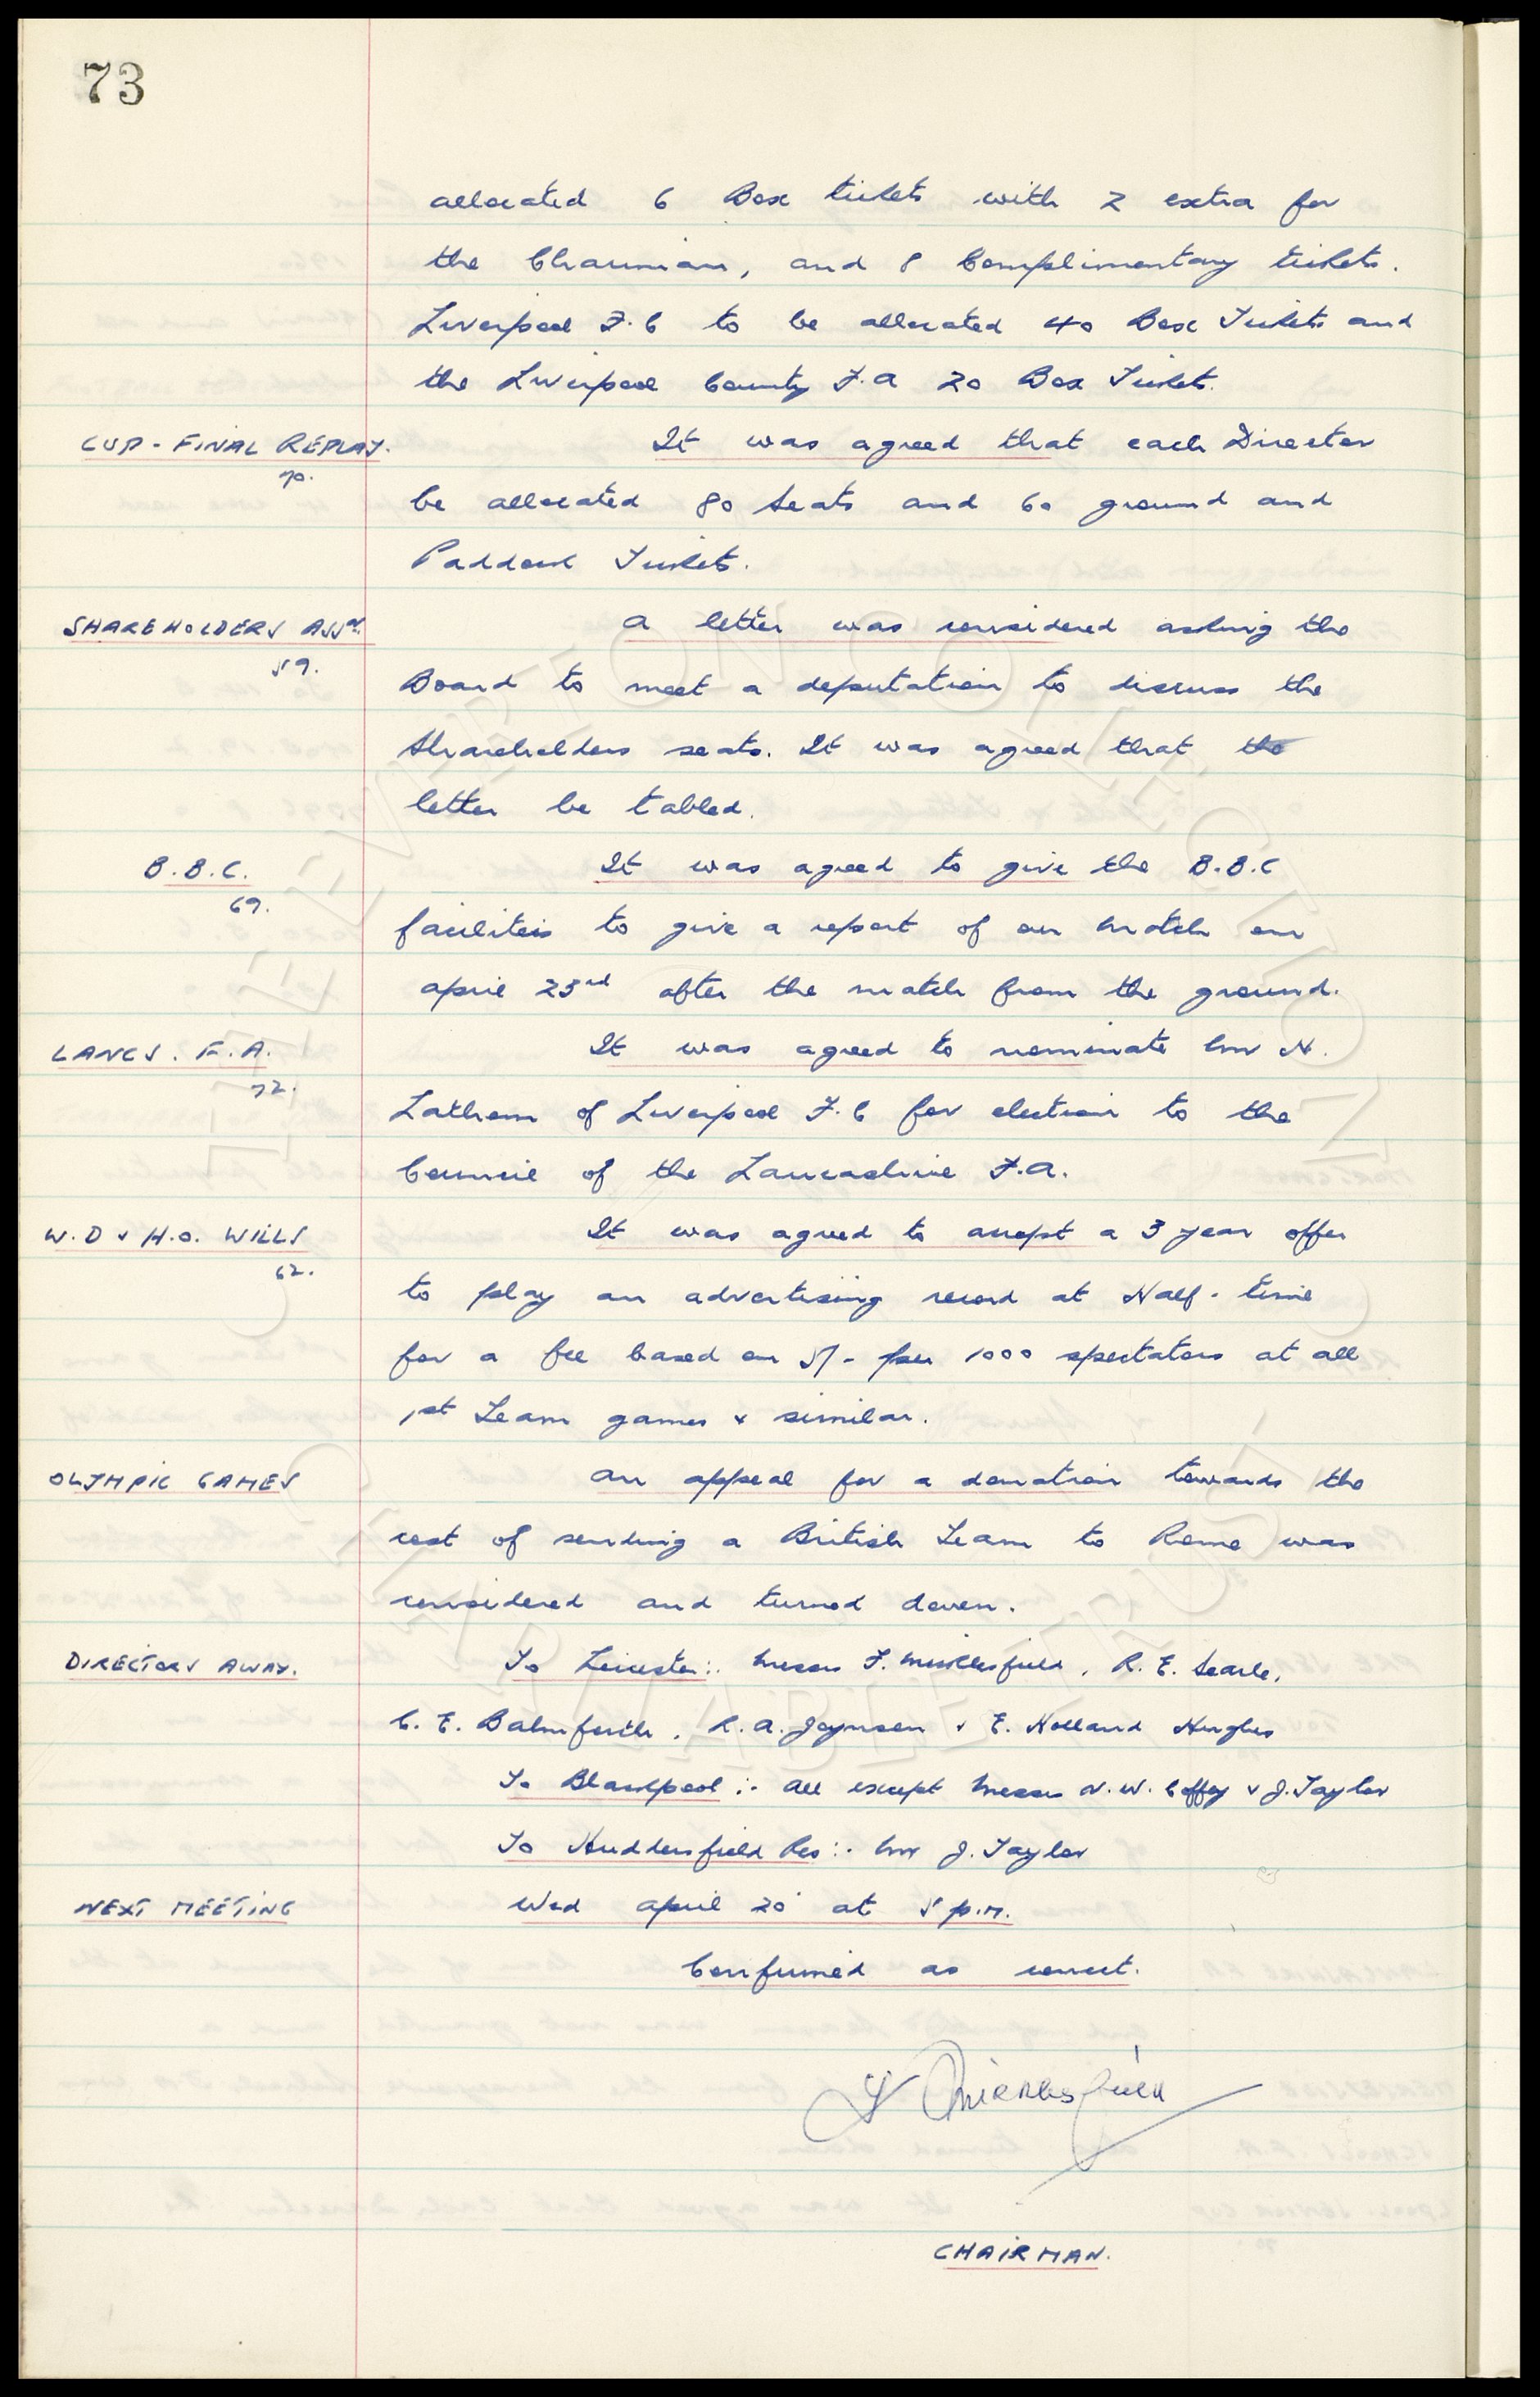 73
allocated 6 Box tickets with 2 extra for
the Chairman, and 8 Complimentary tickets.
Liverpool F.C to be allocated 40 Box Tickets and
the Liverpool County F.A 20 Box Tickets.
CUP-FINAL REPLAY. It was agreed that each Director
70.
be allocated 80 Seats and 60 ground and
Paddock Tickets.
SHAREHOLDERS ASSN. A letter was considered asking the
59.
Board to meet a deputation to discuss the
Shareholders seats. It was agreed that the
letter be tabled.
B.B.C. It was agreed to give the B.B.C
69.
facilities to give a report of our match on
April 23rd after the match from the ground.
LANCS. F.A. It was agreed to nominate Mr N.
72.
Latham of Liverpool F.C for election to the
Council of the Lancashire F.A.
W.D & H.O. WILLS It was agreed to accept a 3 year offer
62.
to play an advertising record at Half-time
for a fee based on 5/- per 1000 spectators at all
1st Team games & similar.
OLYMPIC GAMES An appeal for a donation towards the
cost of sending a British Team to Rome was
considered and turned down.
DIRECTORS AWAY. To Leicester:- Messrs F. Micklesfield, R. E. Searle,
C. E. Balmforth, R. A. Joynson & E. Holland Hughes
To Blackpool:- All except Messrs N. W. Coffey & J. Taylor
To Huddersfield Res:- Mr J. Taylor
NEXT MEETING Wed April 20 at 5 p.m.
Confirmed as correct.
F Micklesfield
CHAIRMAN.